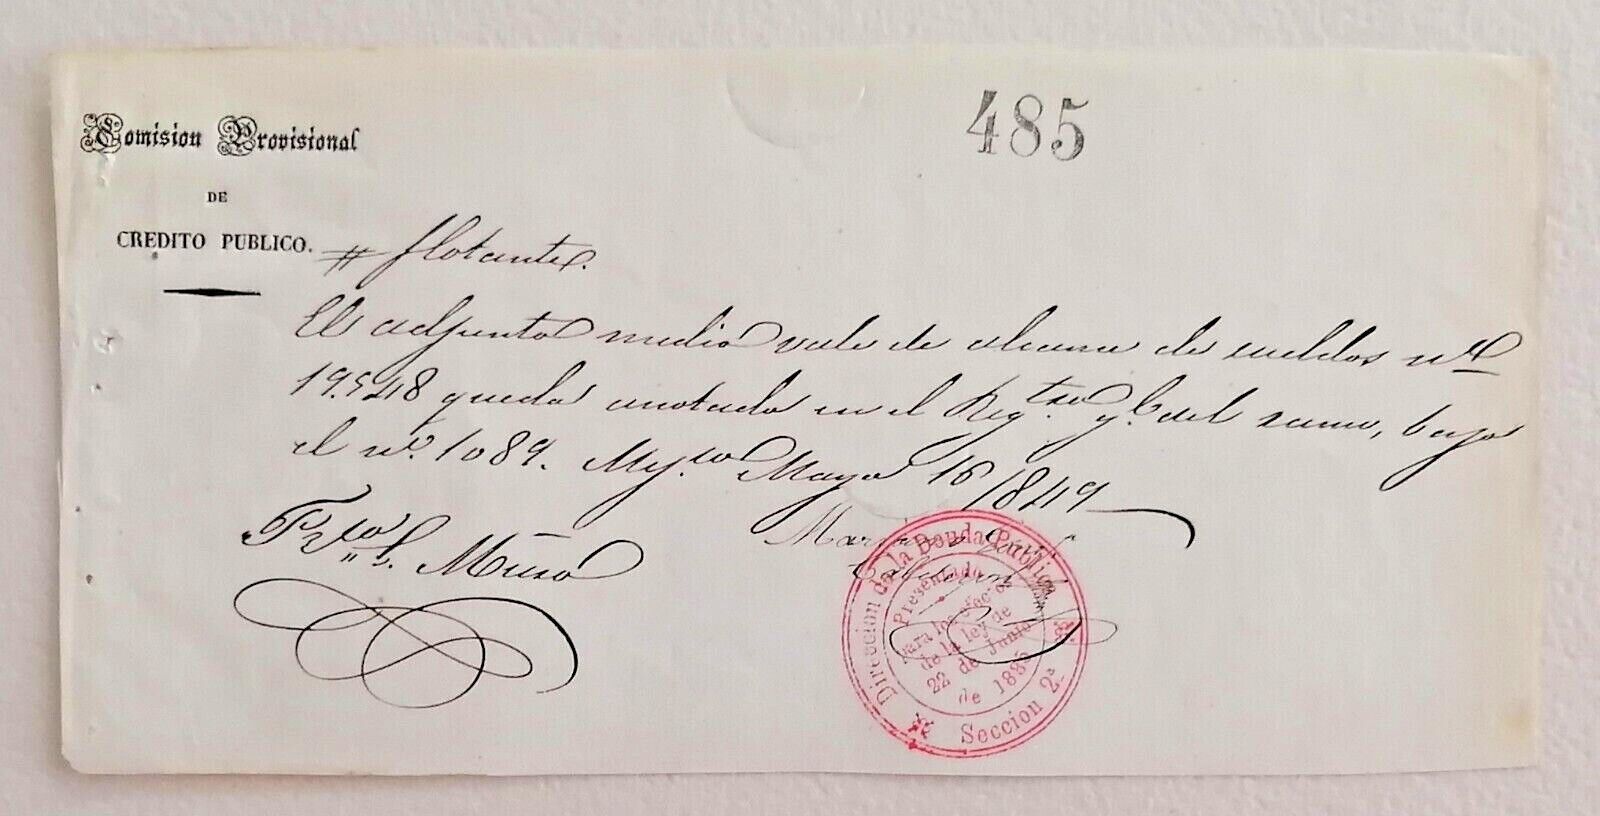 485
Comision Provisional
DE
CREDITO PUBLICO.
# flotante.
El adjunto medio vale de alcance de sueldos nº
19.548 queda anotado en el Regtro gl. del ramo, bajo
el nº. 1089. Mayo 16/849
Frco. Muro
Direccion de la Deuda Publica
Presentado
para los efectos
de la ley de
22 de Junio
de 1885
Seccion 2ª